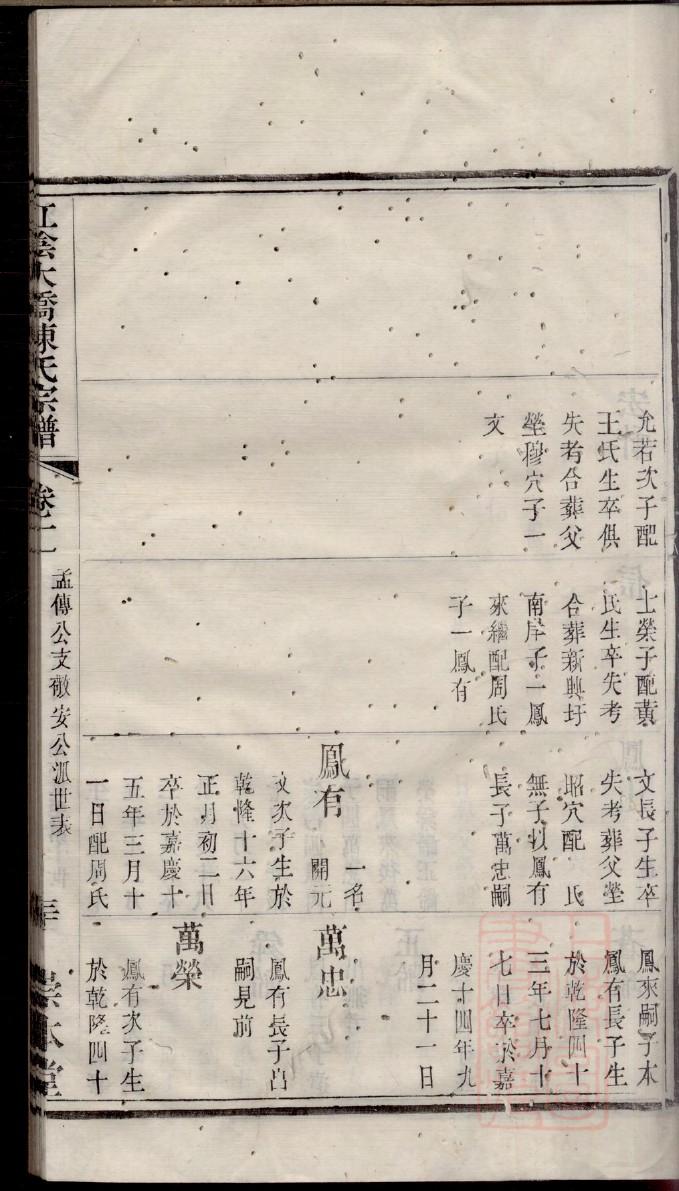 允若次子配
王氏生卒俱
失考合葬父
塋穆穴子一
文
士榮子配黃
氏生卒失考
合葬新興圩
南岸子一鳳
來繼配周氏
子一鳳有
文長子生卒
失考葬父塋
昭穴配　氏
無子以鳳有
長子萬忠嗣
鳳有
一名
開元
文次子生於
乾隆十六年
正月初二日
卒於嘉慶十
五年三月十
一日配周氏
鳳來嗣子本
鳳有長子生
於乾隆四十
三年七月十
七日卒於嘉
慶十四年九
月二十一日
萬忠
鳳有長子出
嗣見前
萬榮
鳳有次子生
於乾隆四十
江陰大橋陳氏宗譜
卷十二
孟傳公支㰸安公派世表
崇本堂